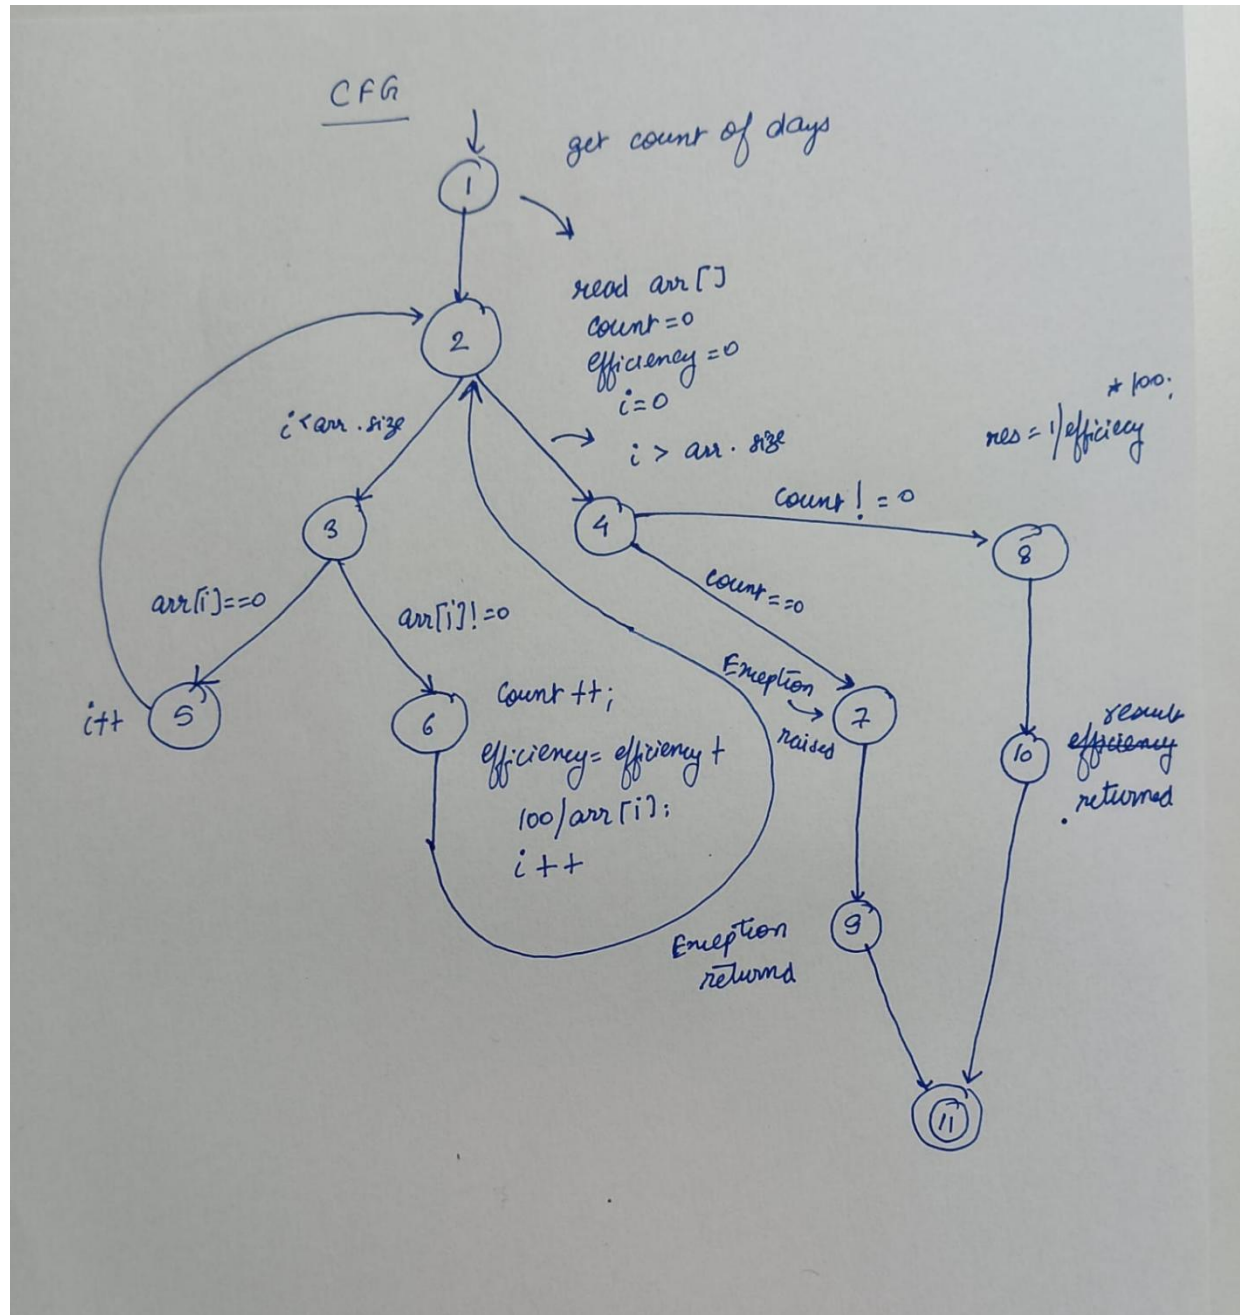 CFG
get count of days
1
read arr[]
count=0
efficiency=0
i=0
2
i<arr.size
i > arr.size
* 100;
res = 1/efficiecy
3
4
count! = 0
8
arr[i]==0
arr[i]!=0
count==0
i++
5
6
count ++;
efficiency= efficiency +
100/arr[i];
i++
Exception
raised
7
10
result
efficiency
returned
9
Exception
returnd
11